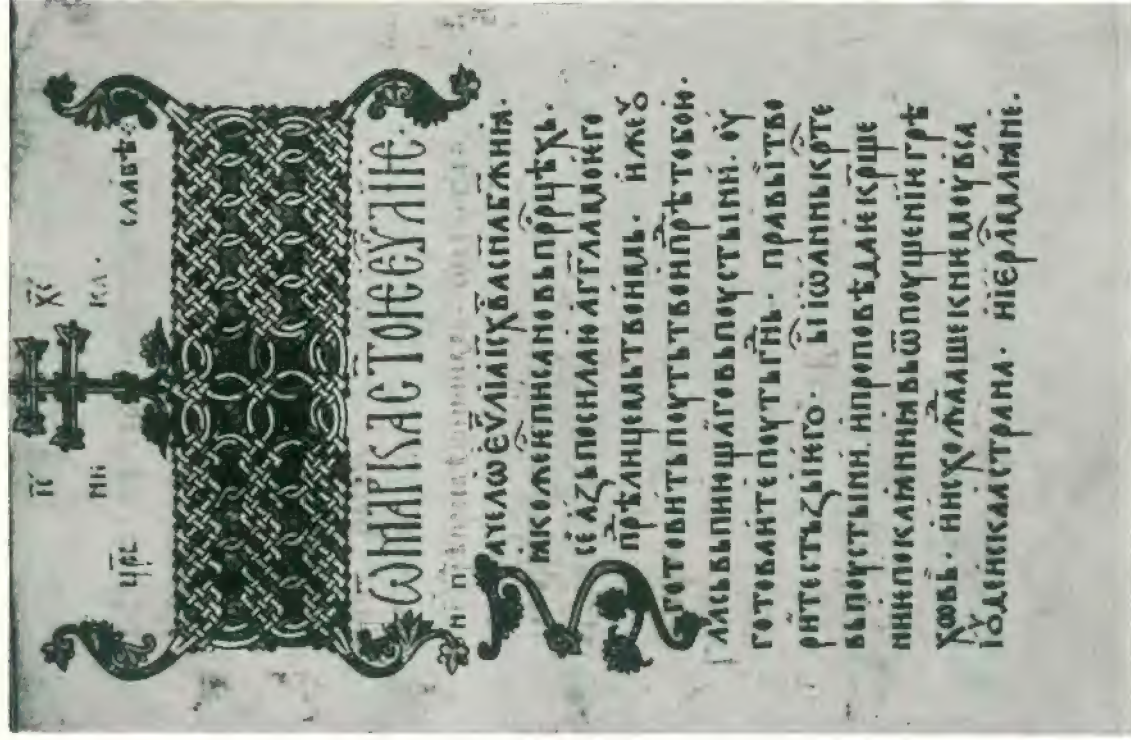 ІС҃ ХС҃
НИ КА·
ЦР҃Ь СЛАВѢ
Ѿ МАРКА СТ҃ОЕ ЕУ҃ЛІЕ·
АЧЕЛѠ ЕѴ҃ЛІА ІС҃ХВ҃А СН҃А БЖ҃ИꙖ·
ꙖКОЖЕ ПИСАНО ВЬ ПРРЦ҃ѢХЬ·
СЕ АЗЬ ПОСИЛАЮ АГГ҃ЛА МОѤГО
ПРѢⷣ ЛИЦЕМЬ ТВОИМЬ· ИЖЕ Ꙋ
ГОТОВИТЬ ПОУТЬ ТВОИ ПРѢⷣ ТОБОЮ·
ГЛАСЬ ВЬПИЮЩАГО ВЬ ПОУСТЫНИ· ОУ
ГОТОВАИТЕ ПОУТЬ ГН҃Ь· ПРАВЫ ТВО
РИТЕ СТЬЗЫ ѤГО· БЫⷭ ІѠАННЬ КРⷭТЕ
ВЬ ПОУСТЫНИ· И ПРОПОВѢДАѤ КРⷭЩЕ
НИѤ ПОКААНИЮ ВЬ ѠПОУЩЕНІЕ ГРѢ
ХѠВЬ· И ИСХОЖⷣАШЕ К НЕМОУ ВСА
ІОУДЕИСКАА СТРАНА· И ІЕРⷭЛМЛꙖНЕ·